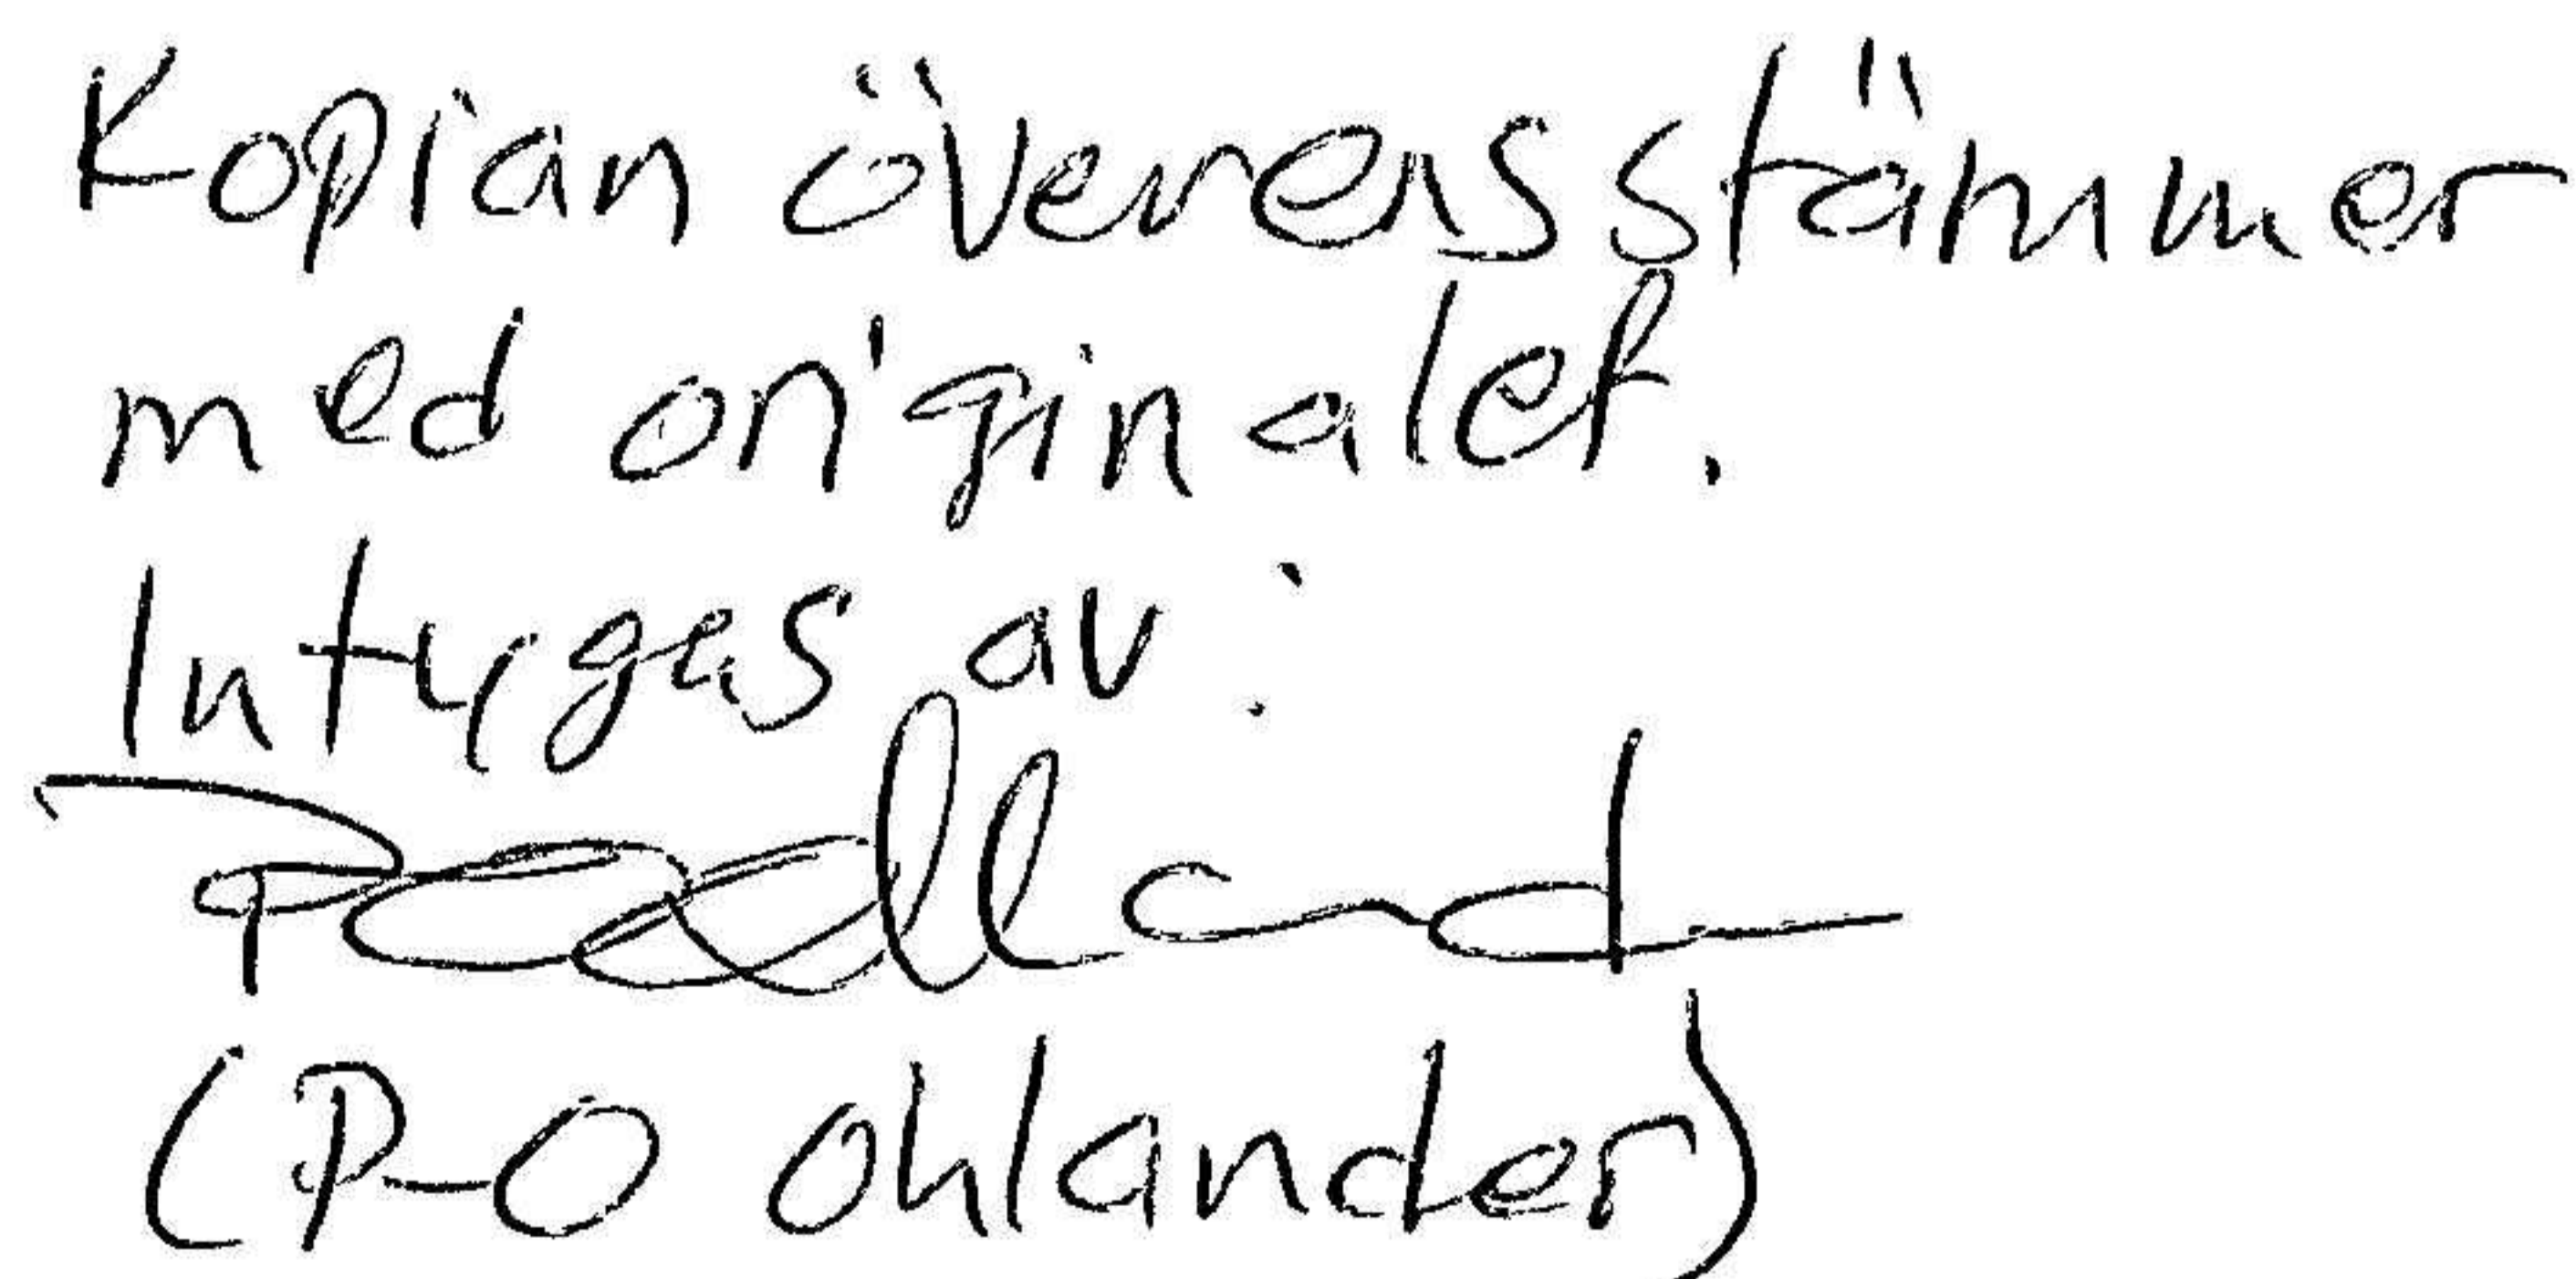 Kopian överensstämmer
med originalet.
Intyges av:
(P-O Ohlander)